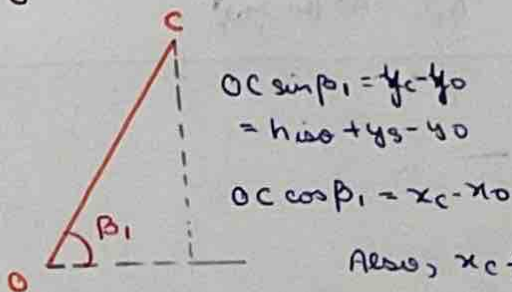 C
OC sinβ₁ = y_c - y_0
= h_iso + y_s - y_0
OC cosβ₁ = x_c - x_0
β₁
O
Also, x_c -